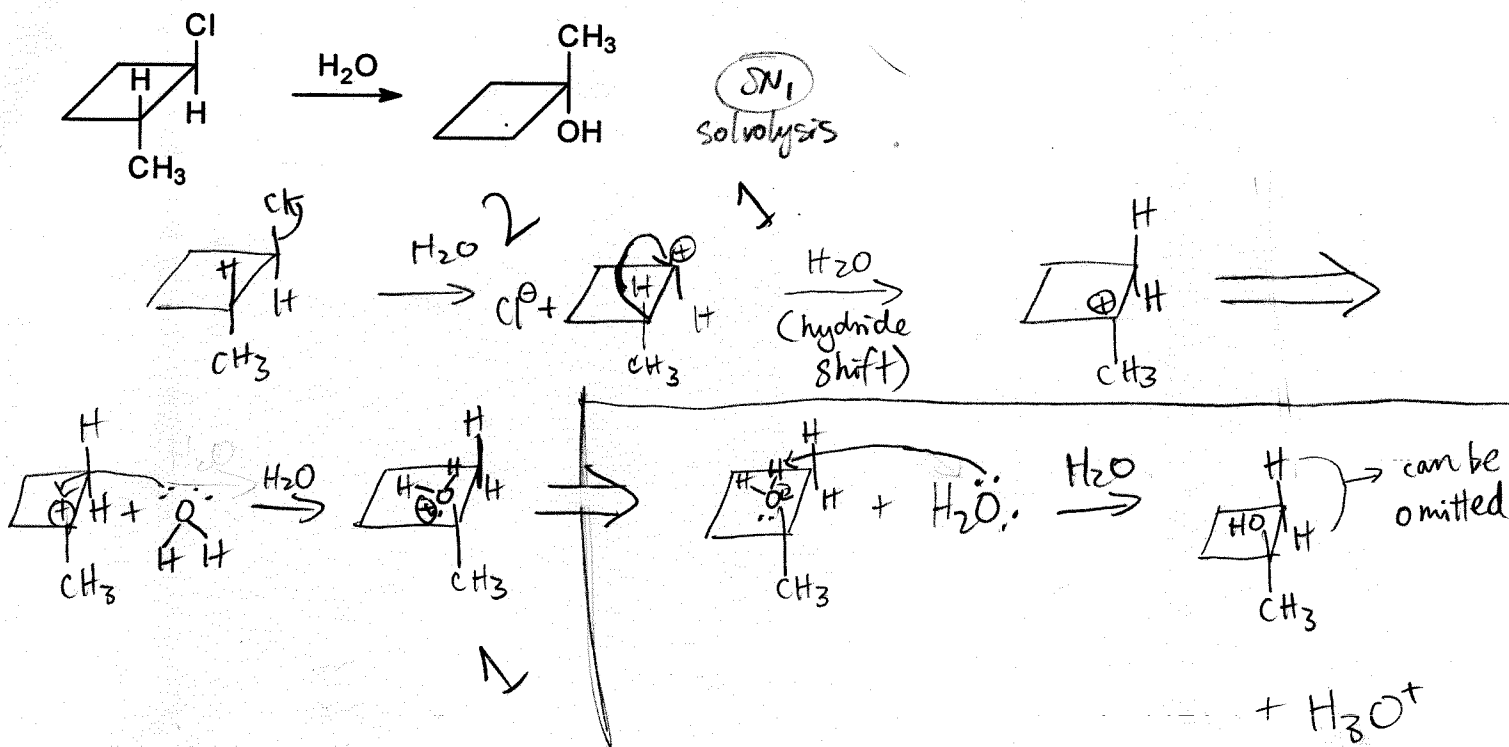 Cl
H
H
CH₃
H₂O
CH₃
OH
SN₁
solvolysis
Cl
H
H
CH₃
H₂O
2
Cl⊖ +
⊕
H
H
CH₃
1
H₂O
(hydride
shift)
H
⊕
H
CH₃
H
⊕ H +
CH₃
:Ö
H H
H₂O
H
H
H-O
⊕
H
CH₃
1
H
H
H-O
H
CH₃
+ H₂O:
H₂O
H
HO
H
CH₃
can be
omitted
+ H₃O⁺